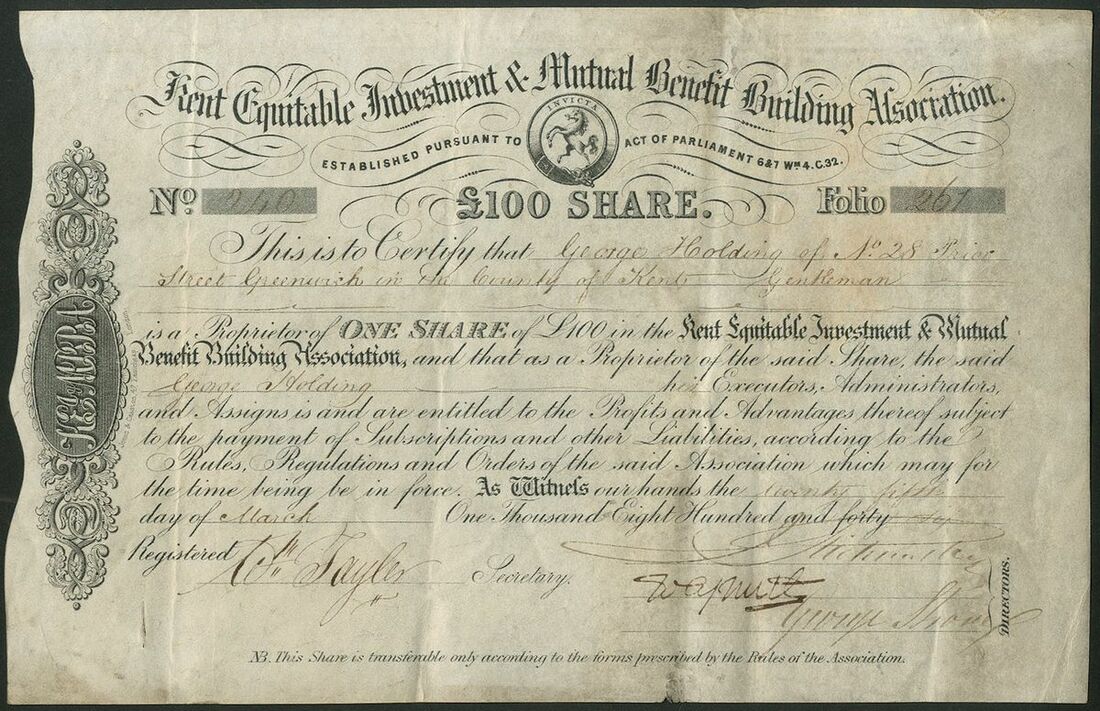 Kent Equitable Investment & Mutual Benefit Building Association.
INVICTA
ESTABLISHED PURSUANT TO ACT OF PARLIAMENT 6&7 Wm 4. C.32.
No. 240 £100 SHARE. Folio 267
This is to Certify that George Holding of No 28 Prior
Street Greenwich in the County of Kent Gentleman
is a Proprietor of ONE SHARE of £100 in the Kent Equitable Investment & Mutual
Benefit Building Association, and that as a Proprietor of the said Share, the said
George Holding his Executors, Administrators,
and Assigns is and are entitled to the Profits and Advantages thereof subject
to the payment of Subscriptions and other Liabilities, according to the
Rules, Regulations and Orders of the said Association which may for
the time being be in force. As Witness our hands the twenty fifth
day of March One Thousand Eight Hundred and forty
Registered Wm Tayler Secretary.
George
DIRECTORS.
NB. This Share is transferable only according to the forms prescribed by the Rules of the Association.